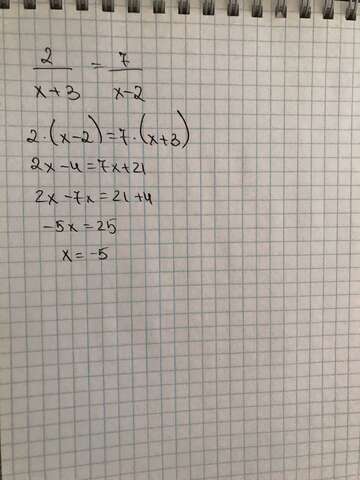 2/(x+3) = 7/(x-2)
2·(x-2)=7·(x+3)
2x-4=7x+21
2x-7x=21+4
-5x=25
x=-5